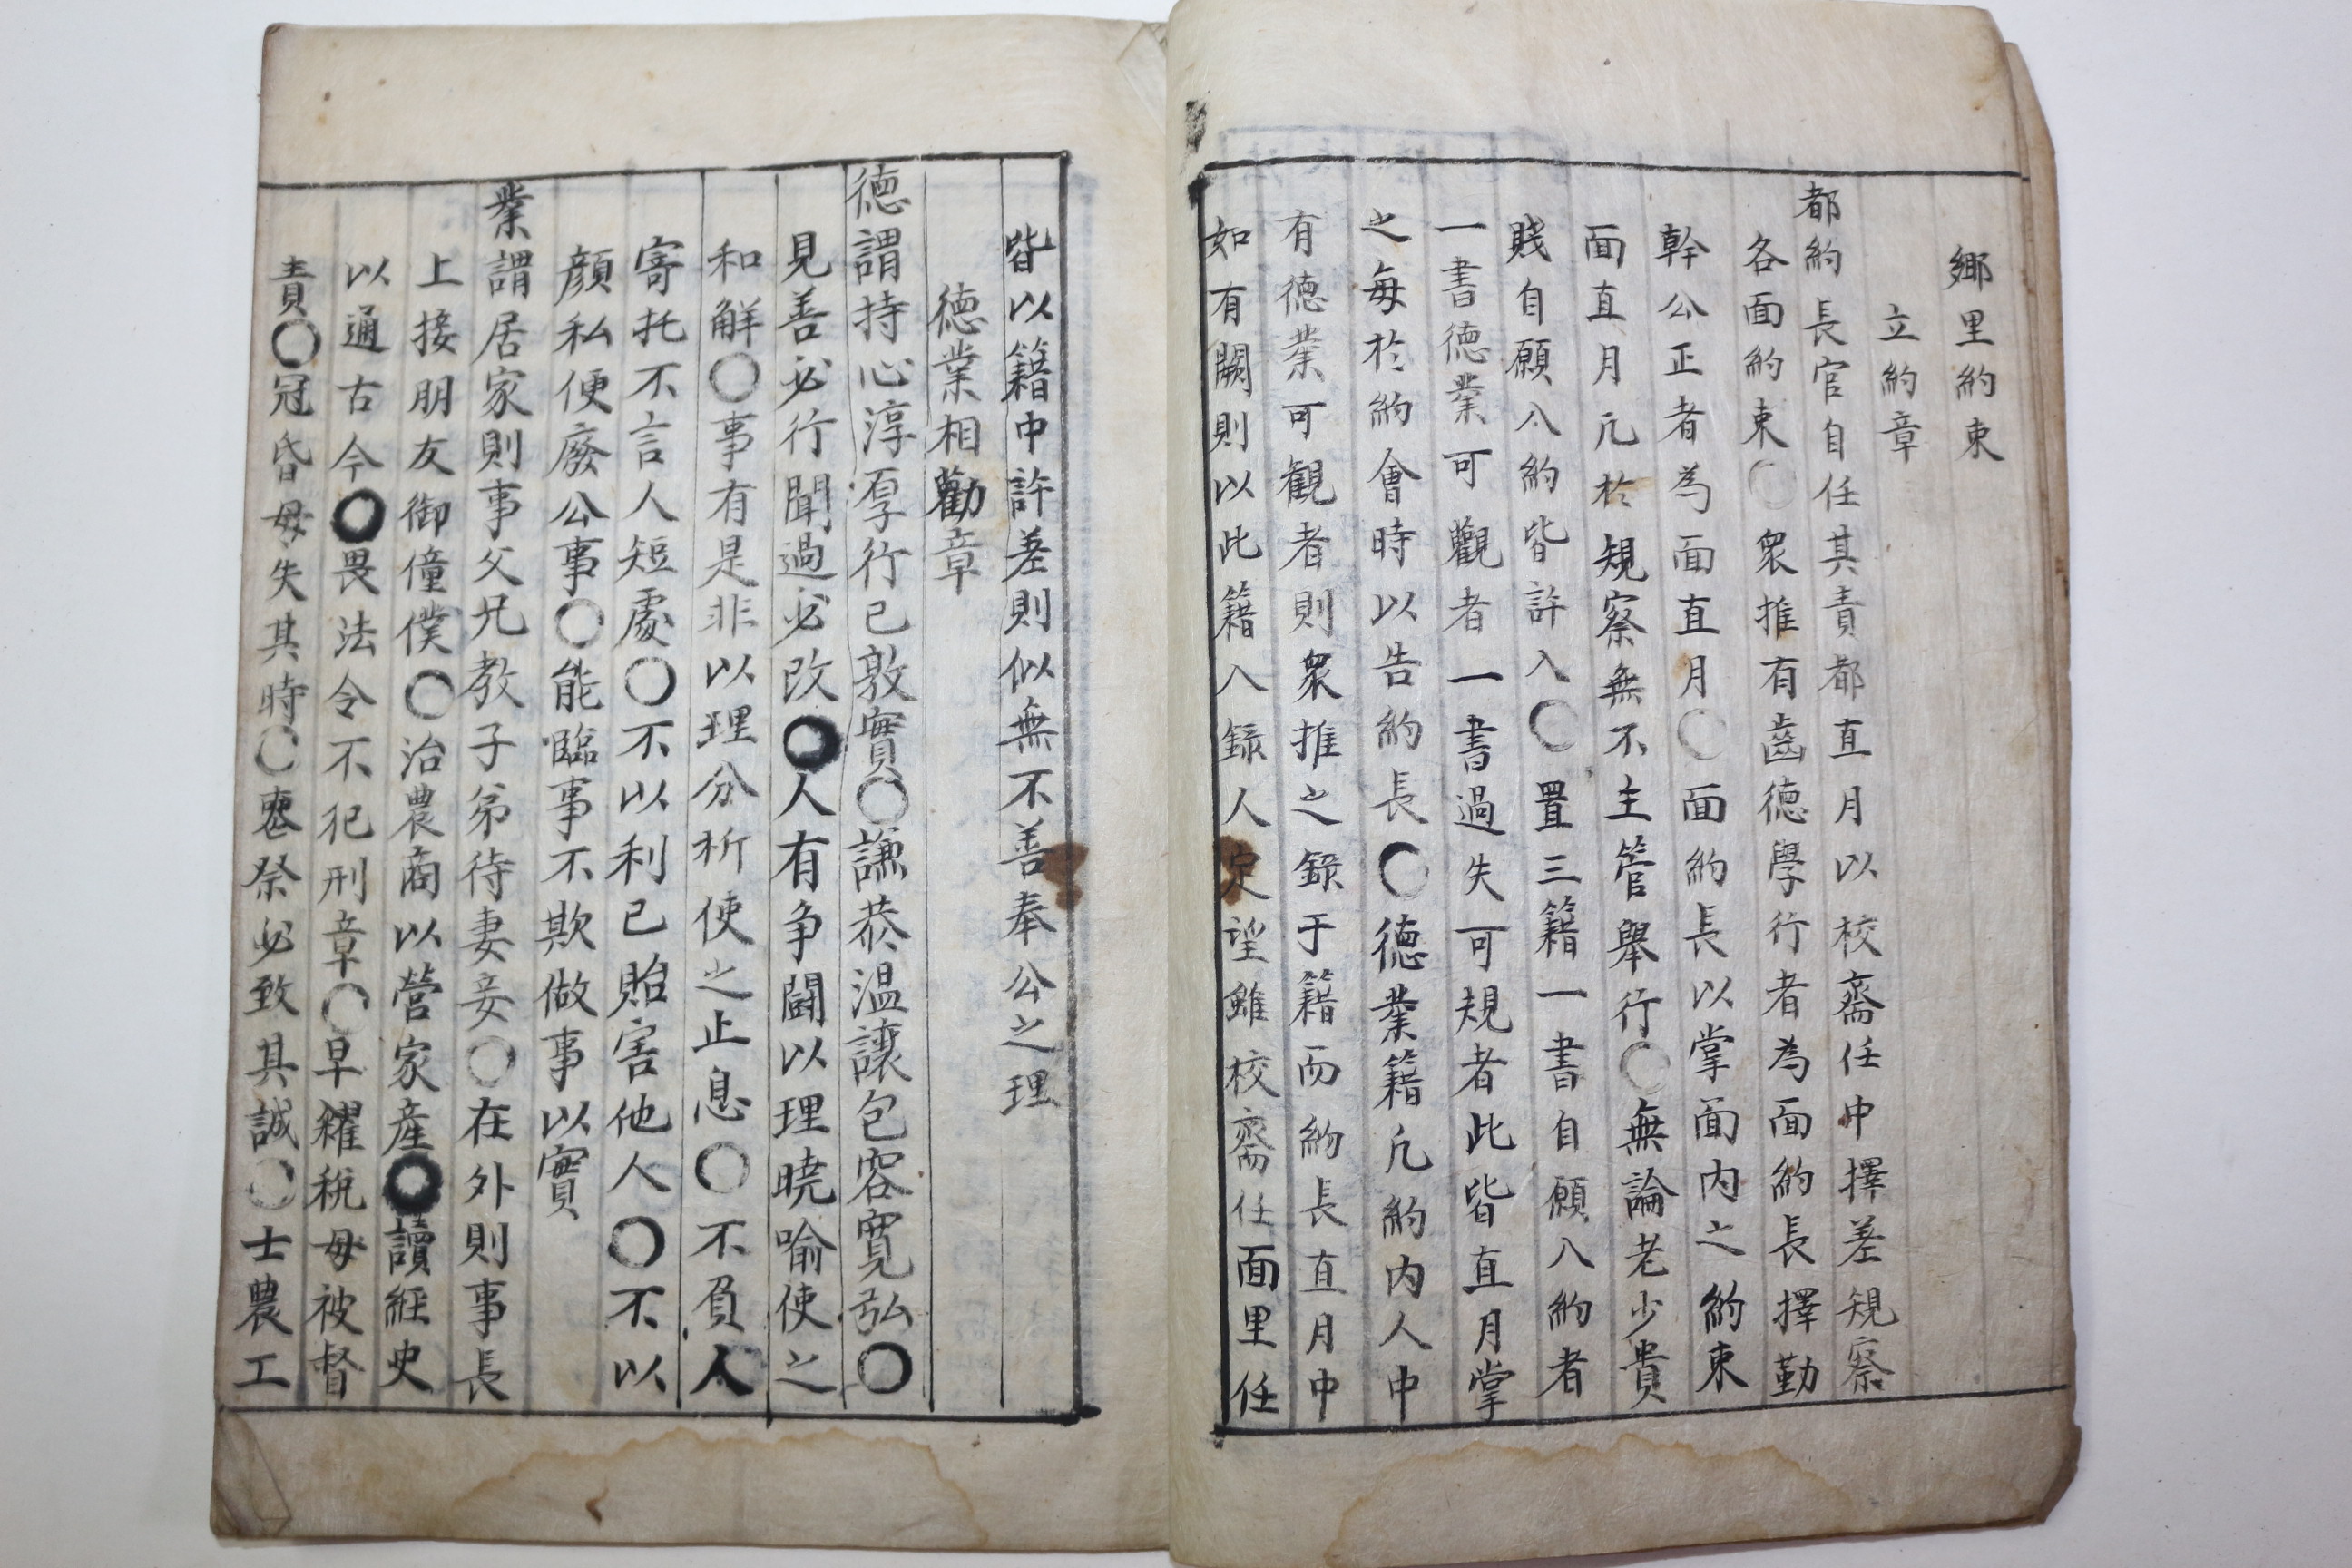 鄉里約束
立約章
都約長官自任其責都直月以校齋任中擇差規察
各面約束○衆推有齒德學行者為面約長擇勤
幹公正者為面直月○面約長以掌面內之約束
面直月凢於規察無不主管舉行○無論老少貴
賤自願入約皆許入○置三籍一書自願入約者
一書德業可觀者一書過失可規者此皆直月掌
之每於約會時以告約長○德業籍凢約內人中
有德業可観者則衆推之錄于籍而約長直月中
如有闕則以此籍入録人定望雖校齋任面里任
皆以籍中許差則似無不善奉公之理
德業相勸章
德謂持心淳厚行己敦實○謙恭温讓包容寬弘○
見善必行聞過必改○人有争鬪以理曉喻使之
和解○事有是非以理分析使之止息○不負人
寄托不言人短處○不以利己貽害他人○不以
顔私便廢公事○能臨事不欺做事以實
業謂居家則事父兄教子弟待妻妾○在外則事長
上接朋友御僮僕○治農商以營家産○讀経史
以通古今○畏法令不犯刑章○早糴税毋被督
責○冠昏毋失其時○喪祭必致其誠○士農工